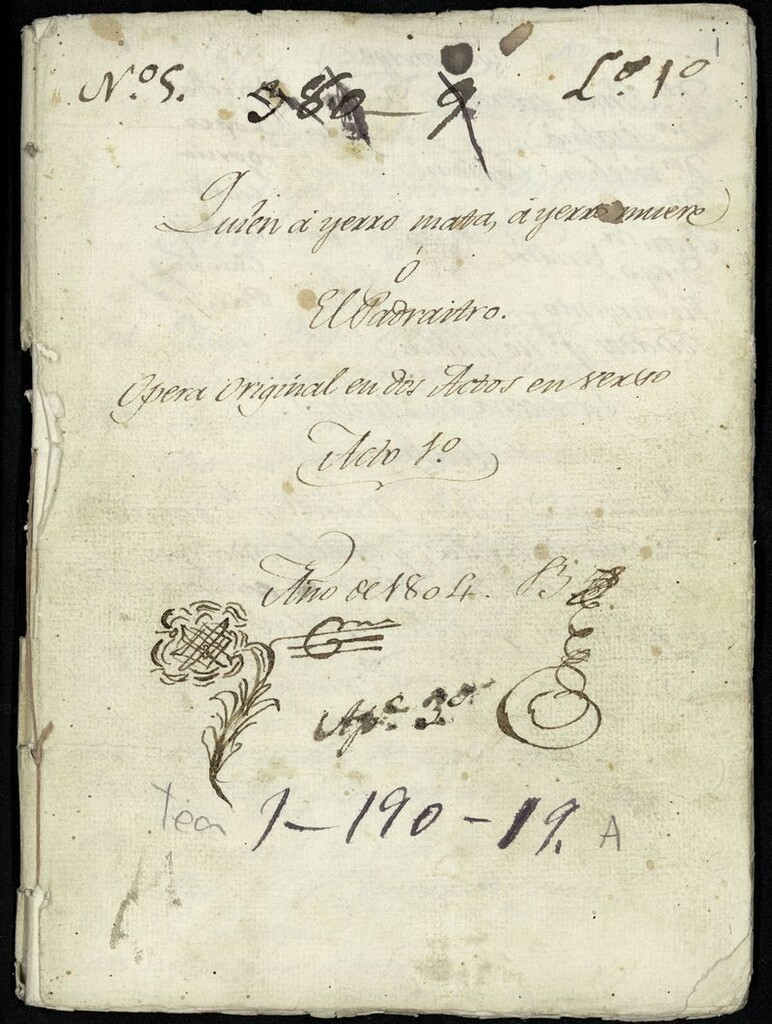 N.º 5. 380 - 9 L.º 1º
1
Quien á yerro mata, á yerro muere
ó
El Padrastro.
Opera Original en dos Actos en verso
Acto 1º
Año de 1804. B
Ap.e 3º
Tea 1-190-19. A